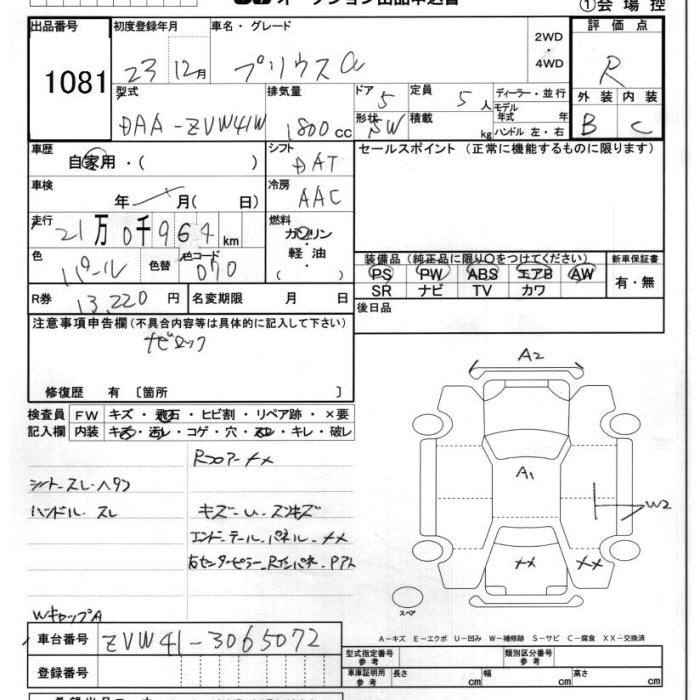 オークション出品申込書
①会場控
出品番号
1081
初度登録年月
23 12月
車名・グレード
プリウスα
2WD
・
4WD
評価点
R
型式
DAA-ZVW41W
排気量
1800cc
ドア
5
形状
SW
定員
5人
積載
kg
ディーラー・並行
モデル年式 年
ハンドル 左・右
外装 内装
B C
車歴
自家用・( )
シフト
DAT
セールスポイント (正常に機能するものに限ります)
車検
年 月( 日)
冷房
AAC
走行
21万0千964km
燃料
ガソリン
・
軽油
( )
色
パール
色替
色コード
070
装備品 (純正品に限り○をつけてください)
PS PW ABS エアB AW
SR ナビ TV カワ
新車保証書
有・無
R券 13,220円 名変期限 月 日
後日品
注意事項申告欄 (不具合内容等は具体的に記入して下さい)
ナビロック
修復歴 有 〔箇所 〕
検査員記入欄
FW キズ・飛石・ヒビ割・リペア跡・×要
内装 キズ・汚レ・コゲ・穴・スレ・キレ・破レ
シート・スレ・ヘタり
ハンドル・スレ
WキャップA
RコアーXX
キズ・U・スンキズ
エンド・テール・パネル・XX
右センターピラー・Rインパネ・Pアト
A2
A1
W2
XX
XX
スペア
A-キズ E-エクボ U-凹み W-補修跡 S-サビ C-腐食 XX-交換済
車台番号 ZVW41-3065072
登録番号
型式指定番号 参考
類別区分番号 参考
車庫証明用 参考 長さ cm 幅 cm 高さ cm